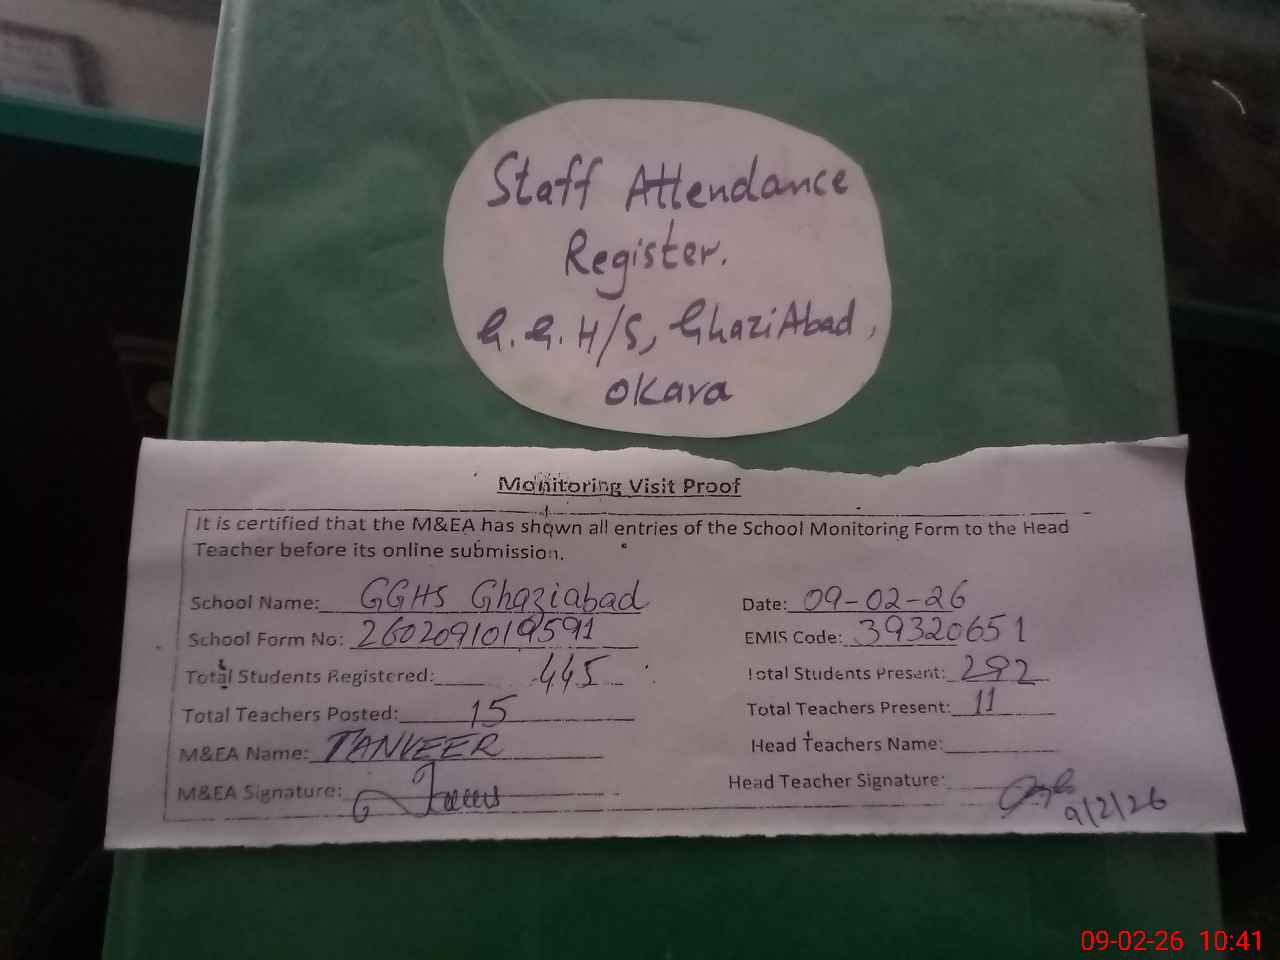 Staff Attendance
Register.
G.G.H/S, GhaziAbad,
Okara
Monitoring Visit Proof
It is certified that the M&EA has shown all entries of the School Monitoring Form to the Head
Teacher before its online submission.
School Name: GGHS Ghaziabad Date: 09-02-26
School Form No: 2602091019591 EMIS Code: 39320651
Total Students Registered: 445 Total Students Present: 292
Total Teachers Posted: 15 Total Teachers Present: 11
M&EA Name: TANVEER Head Teachers Name:
M&EA Signature: Head Teacher Signature:
9/2/26
09-02-26 10:41